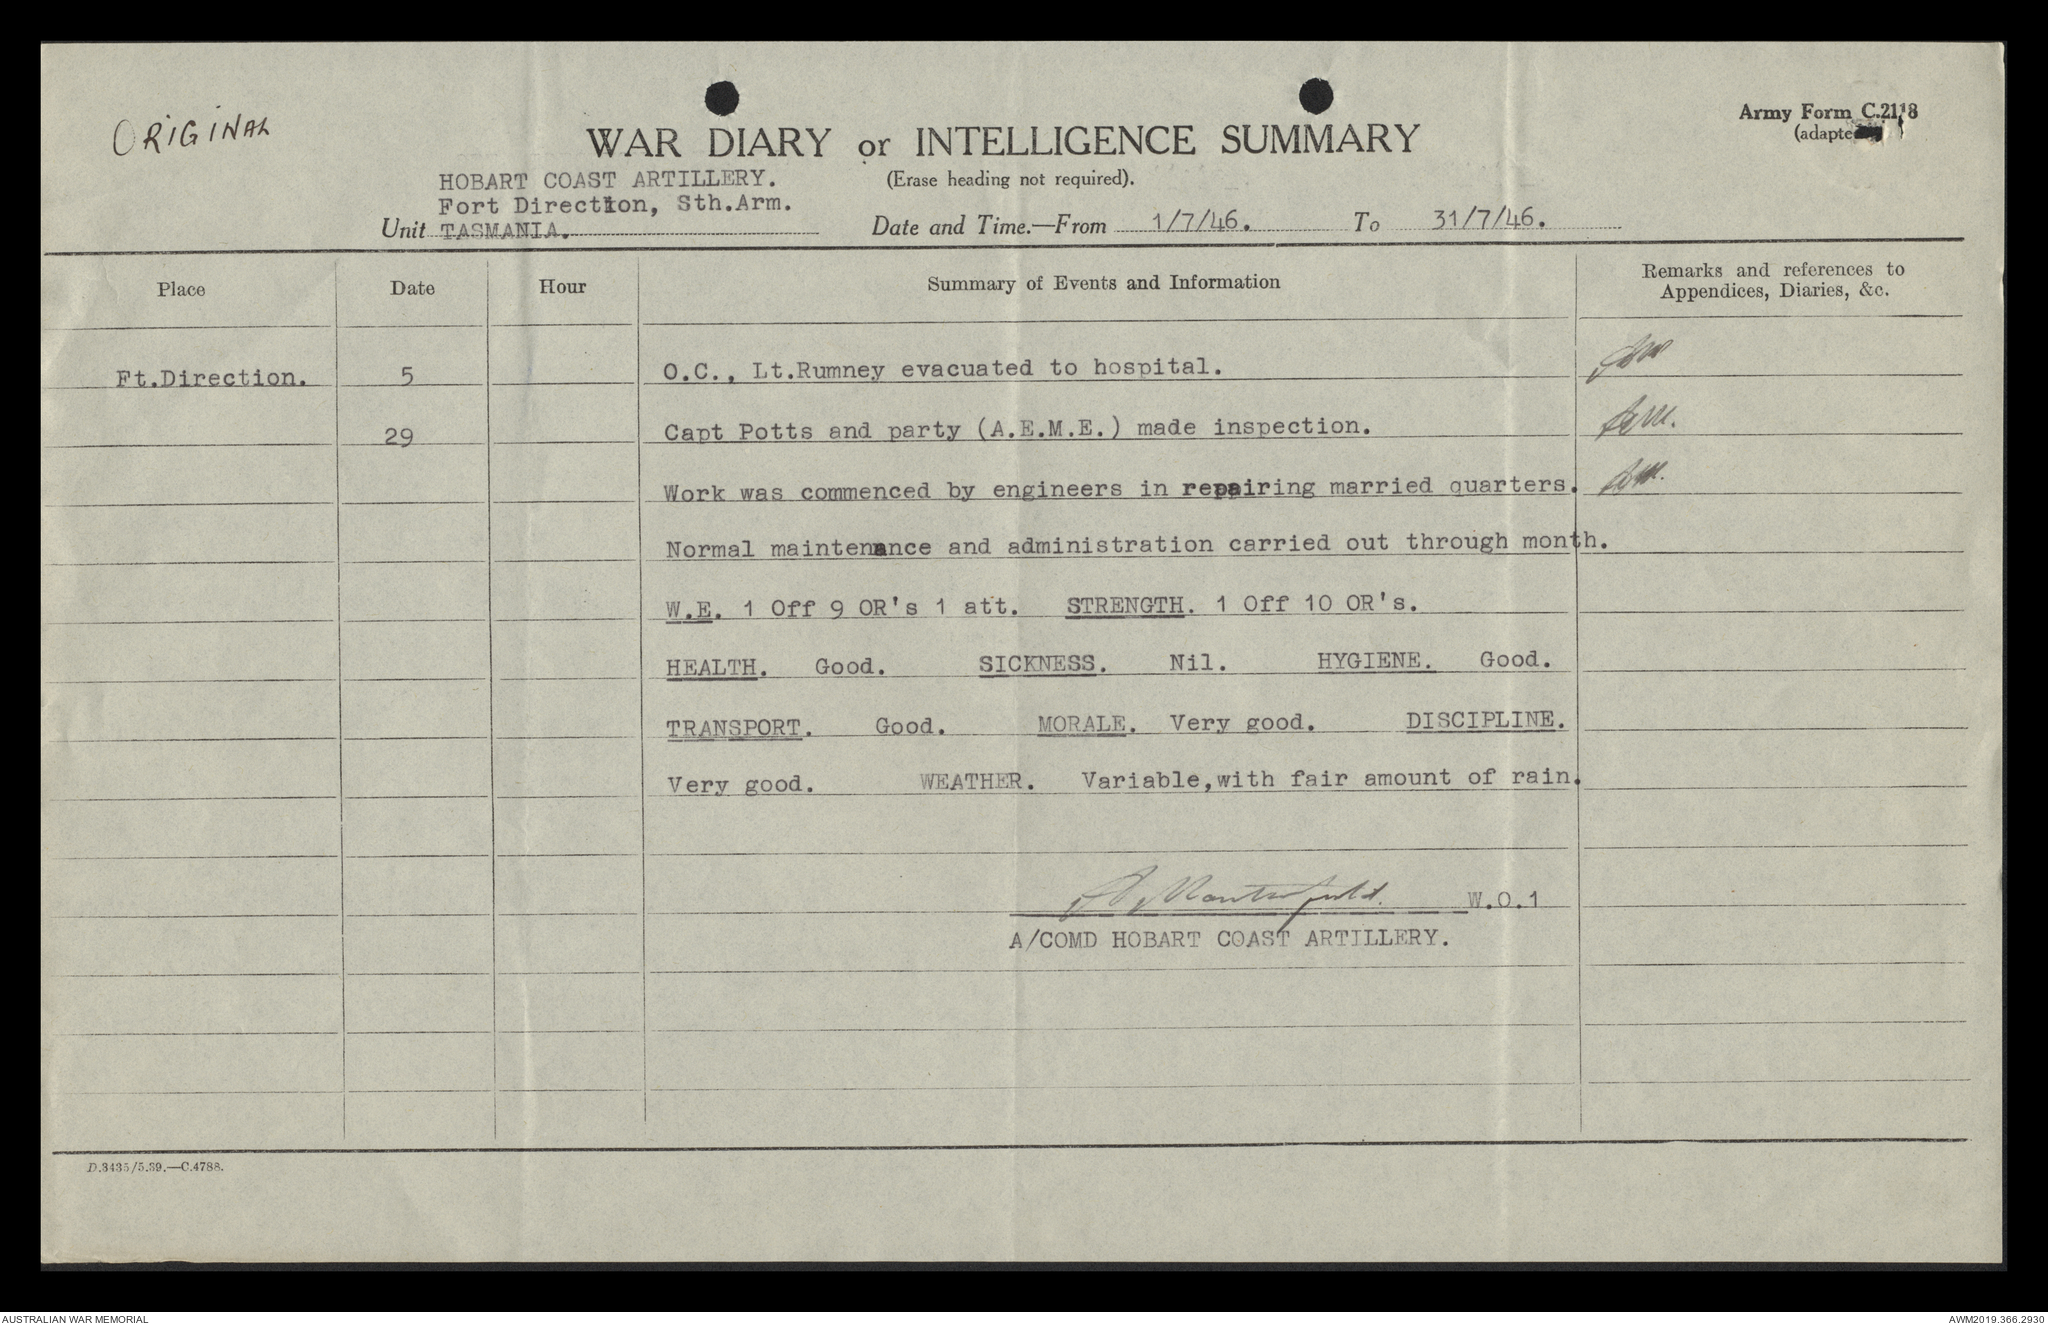 ORIGINAL
Army Form C.2118
(adapte
WAR DIARY or INTELLIGENCE SUMMARY
(Erase heading not required).
HOBART COAST ARTILLERY.
Fort Direction, Sth.Arm.
Unit TASMANIA.
Date and Time.—From 1/7/46. To 31/7/46.
Place Date Hour Summary of Events and Information Remarks and references to
Appendices, Diaries, &c.
Ft.Direction. 5 O.C., Lt.Rumney evacuated to hospital.
29 Capt Potts and party (A.E.M.E.) made inspection.
Work was commenced by engineers in repairing married quarters.
Normal maintenance and administration carried out through month.
W.E. 1 Off 9 OR's 1 att. STRENGTH. 1 Off 10 OR's.
HEALTH. Good. SICKNESS. Nil. HYGIENE. Good.
TRANSPORT. Good. MORALE. Very good. DISCIPLINE.
Very good. WEATHER. Variable,with fair amount of rain.
W.O.1
A/COMD HOBART COAST ARTILLERY.
D.3435/5.39.—C.4788.
AUSTRALIAN WAR MEMORIAL
AWM2019.366.2930